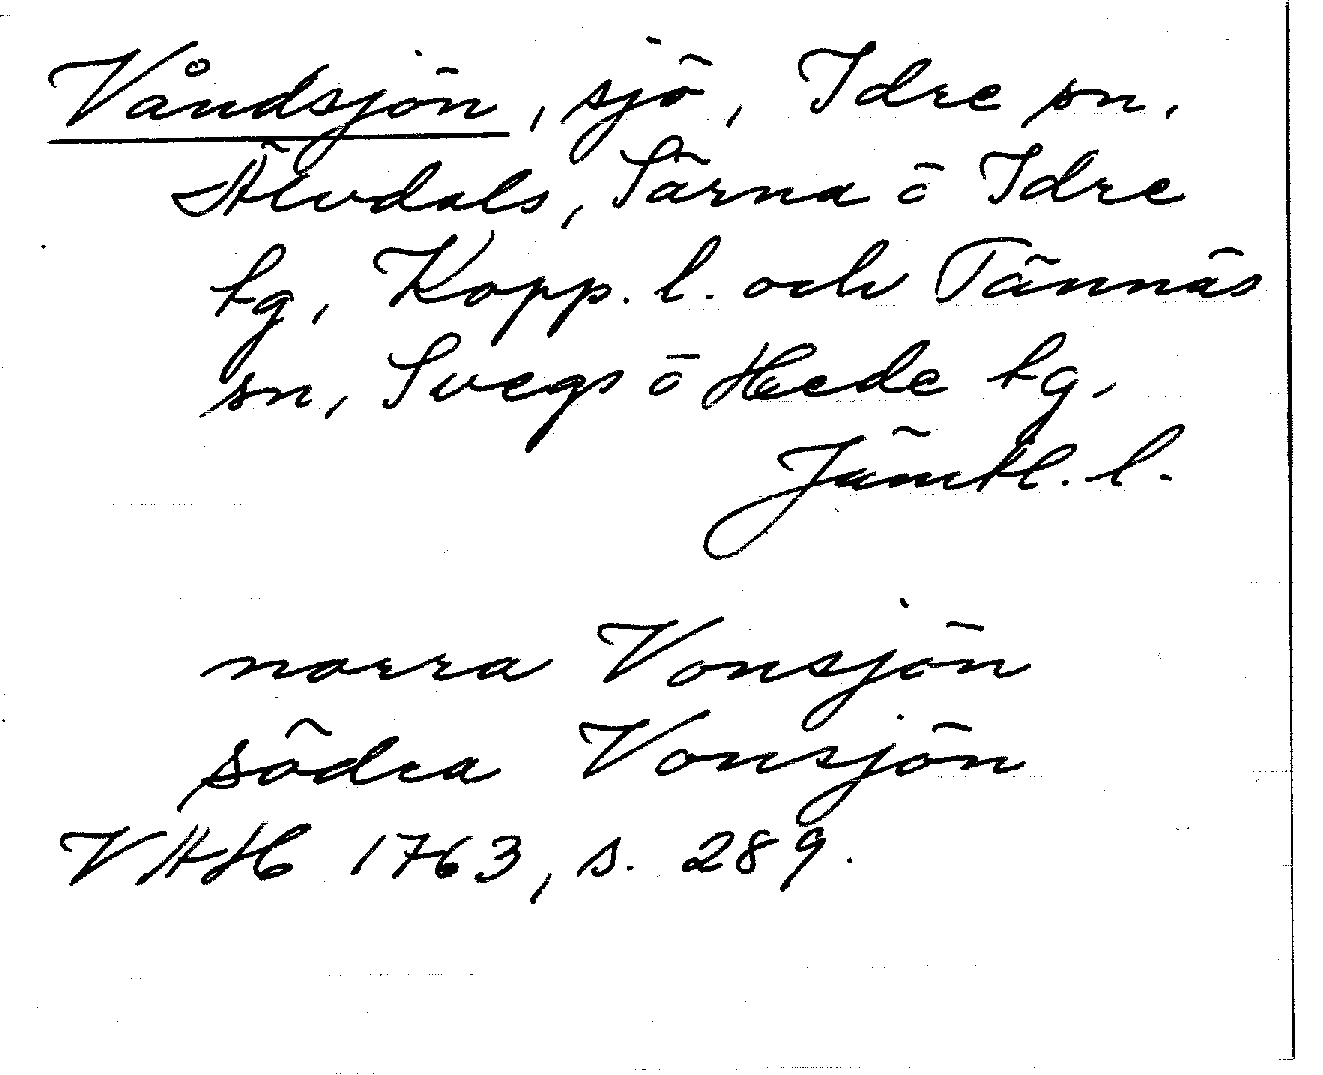 Våndsjön, sjö, Idre sn,
Älvdals, Särna o Idre
tg, Kopp. l. och Tännäs
sn, Svegs o Hede tg,
Jämtl. l.
norra Vonsjön
södra Vonsjön
VAH 1763, s. 289.